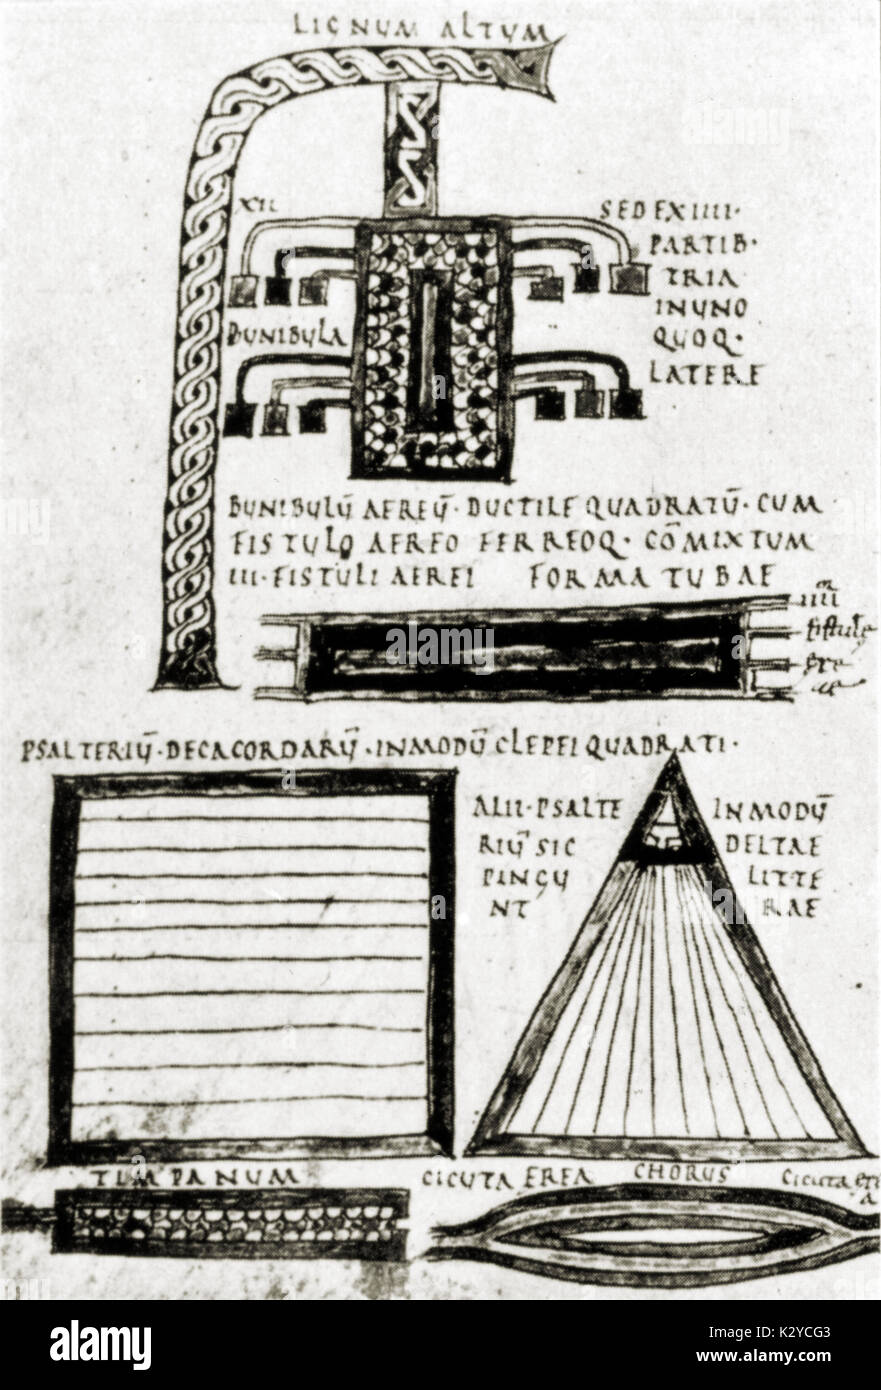 LIGNUM ALTUM
XII
SEDEXIIII·
PARTIB·
TRIA
INUNO
QUOQ·
LATERE
BUNIBULA
BUNIBULŪ AEREŪ· DUCTILE QUADRATŪ· CUM
FISTULO AEREO FERREOQ· CŌMIXTUM
III·FISTULI AEREI FORMA TUBAE
fistule
ere
PSALTERIŪ· DECACORDARŪ· INMODŪ CLEPEI QUADRATI·
ALII·PSALTE
RIŪ SIC
PINGU
NT
INMODŪ
DELTAE
LITTE
RAE
TIMPANUM
CICUTA EREA
CHORUS
CICUTA ere
A
alamy
alamy stock photo
K2YCG3
www.alamy.com